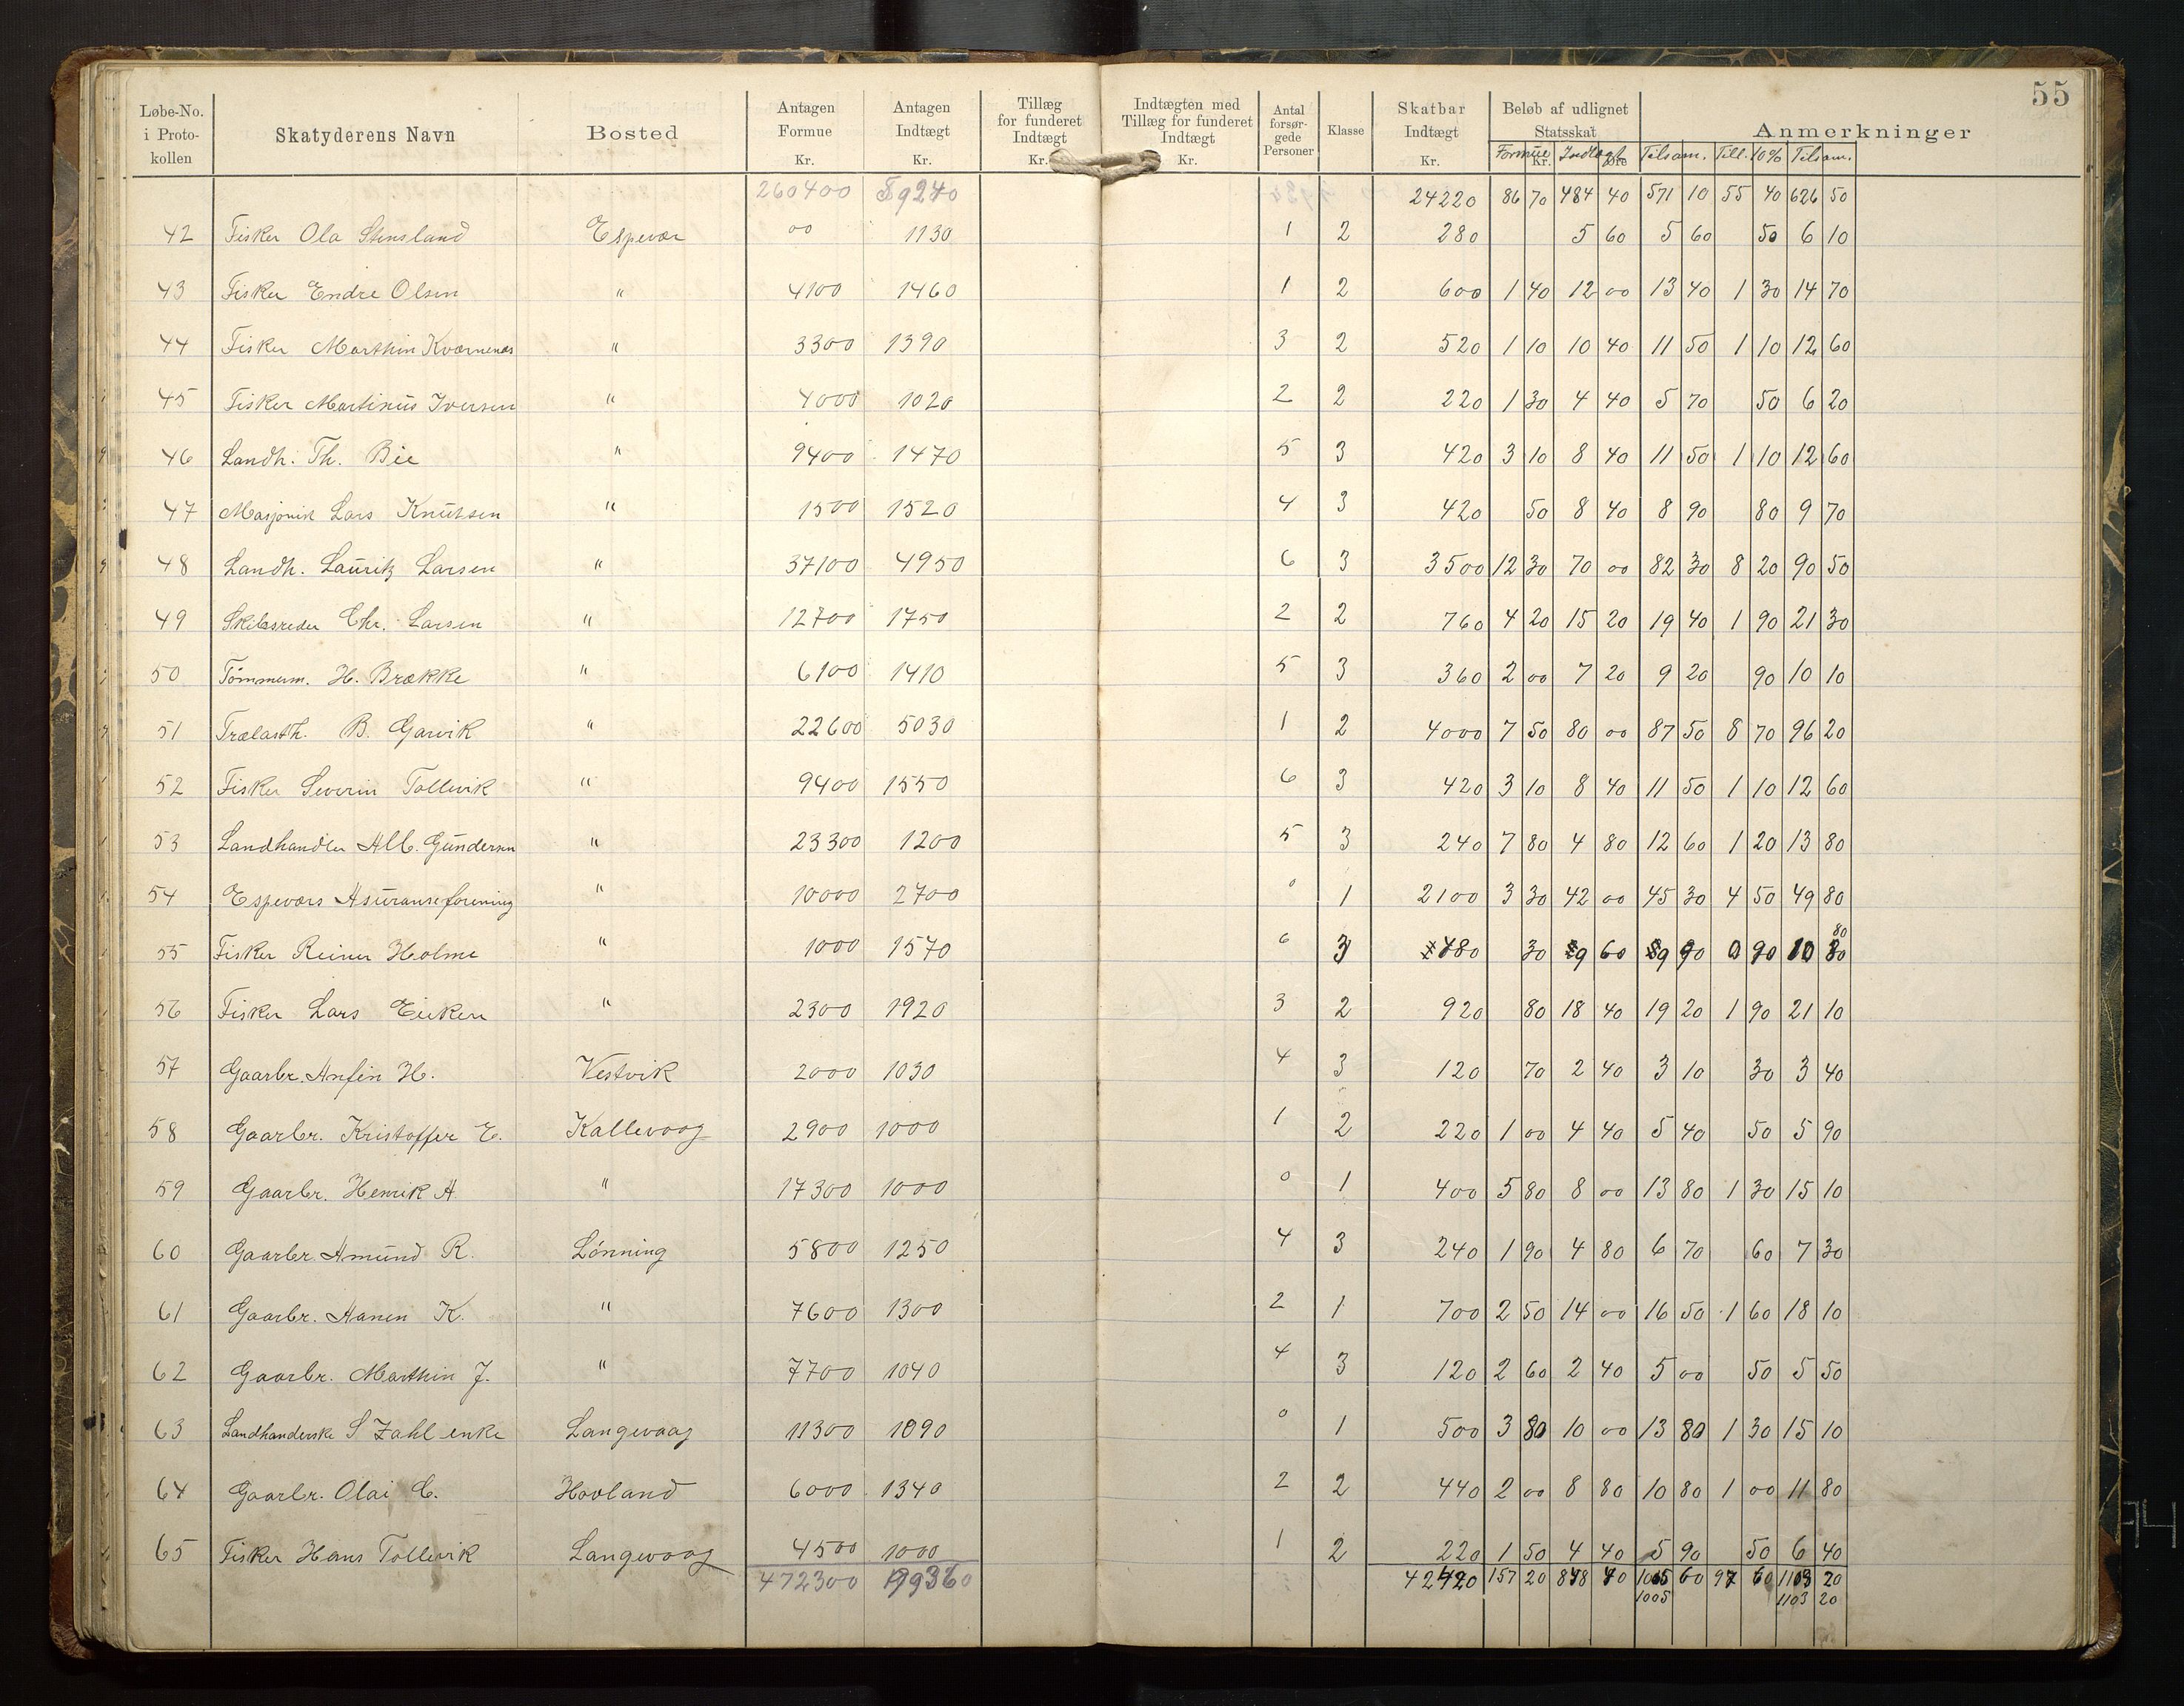 55
Løbe-No. i Protokollen | Skatyderens Navn | Bosted | Antagen Formue Kr. | Antagen Indtægt Kr. | Tillæg for funderet Indtægt Kr. | Indtægten med Tillæg for funderet Indtægt Kr. | Antal forsørgede Personer | Klasse | Skatbar Indtægt Kr. | Beløb af udlignet Statsskat Kr. Øre | Anmerkninger
Formue Indtægt Tilsam. Till. 10% Tilsam.
260400 59240 24220 86 70 484 40 571 10 55 40 626 50
42 Fisker Ola Stensland Espevær 00 1130 1 2 280 5 60 5 60 50 6 10
43 Fisker Endre Olsen " 4100 1460 1 2 600 1 40 12 00 13 40 1 30 14 70
44 Fisker Marthin Kværnenes " 3300 1390 3 2 520 1 10 10 40 11 50 1 10 12 60
45 Fisker Martinus Iversen " 4000 1020 2 2 220 1 30 4 40 5 70 50 6 20
46 Landh. Th. Bie " 9400 1470 5 3 420 3 10 8 40 11 50 1 10 12 60
47 Lars Knutsen " 1500 1520 4 3 420 50 8 40 8 90 80 9 70
48 Landh. Lauritz Larsen " 37100 4950 6 3 3500 12 30 70 00 82 30 8 20 90 50
49 Skibsreder Chr. Larsen " 12700 1750 2 2 760 4 20 15 20 19 40 1 90 21 30
50 Tømmerm. H. Brække " 6100 1410 5 3 360 2 00 7 20 9 20 90 10 10
51 Trælasth. B. Garvik " 22600 5030 1 2 4000 7 50 80 00 87 50 8 70 96 20
52 Fisker Severin Tollevik " 9400 1550 6 3 420 3 10 8 40 11 50 1 10 12 60
53 Landhandler Alb. Gundersen " 23300 1200 5 3 240 7 80 4 80 12 60 1 20 13 80
54 Espeværs Asuranseforening " 10000 2700 0 1 2100 3 30 42 00 45 30 4 50 49 80
55 Fisker Reiner Holme " 1000 1570 6 3 480 30 9 60 9 90 0 90 10 80
56 Fisker Lars Eieken " 2300 1920 3 2 920 80 18 40 19 20 1 90 21 10
57 Gaarbr. Anfin H. Vestvik 2000 1030 4 3 120 70 2 40 3 10 30 3 40
58 Gaarbr. Kristoffer E. Kallevaag 2900 1000 1 2 220 1 00 4 40 5 40 50 5 90
59 Gaarbr. Henrik A " 17300 1000 0 1 400 5 80 8 00 13 80 1 30 15 10
60 Gaarbr. Amund R. Lønning 5800 1250 4 3 240 1 90 4 80 6 70 60 7 30
61 Gaarbr. Hanen K. " 7600 1300 2 1 700 2 50 14 00 16 50 1 60 18 10
62 Gaarbr. Marthin J. " 7700 1040 4 3 120 2 60 2 40 5 00 50 5 50
63 Landhanderske S Zahl enke Langevaag 11300 1090 0 1 500 3 80 10 00 13 80 1 30 15 10
64 Gaarbr. Olai C. Hovland 6000 1340 2 2 440 2 00 8 80 10 80 1 00 11 80
65 Fisker Hans Tollevik Langevaag 4500 1000 1 2 220 1 50 4 40 5 90 50 6 40
472300 99360 42420 157 20 848 40 1005 60 97 60 1103 20
1005 1103 20